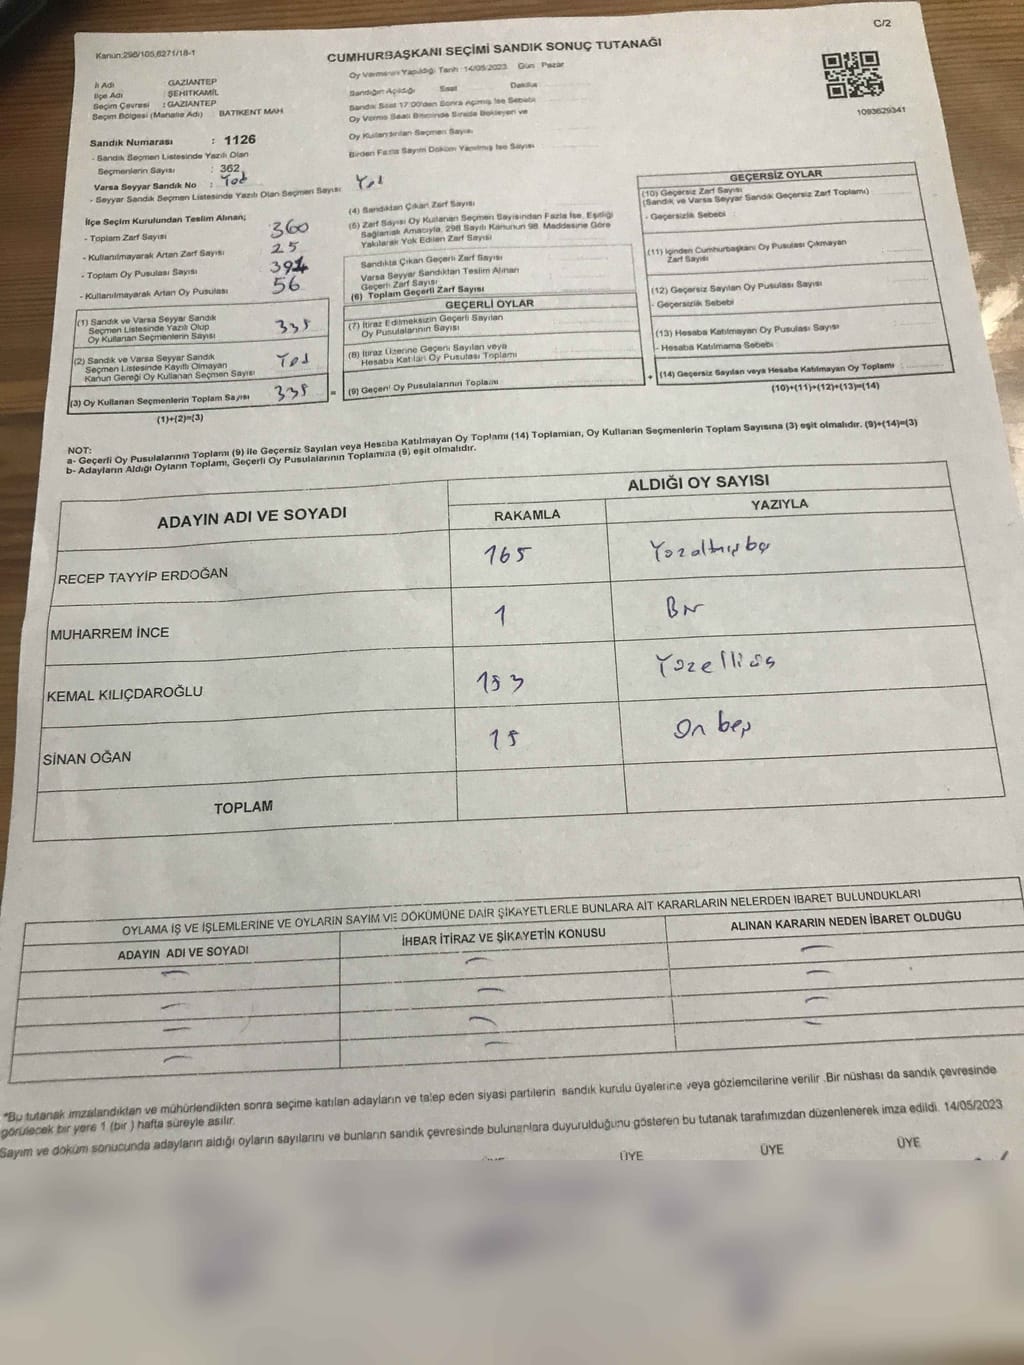 C/2
Kanun:298/105,6271/18-1
CUMHURBAŞKANI SEÇİMİ SANDIK SONUÇ TUTANAĞI
İl Adı : GAZİANTEP
İlçe Adı : ŞEHİTKAMİL
Seçim Çevresi : GAZİANTEP
Seçim Bölgesi (Mahalle Adı) BATIKENT MAH
Oy Vermenin Yapıldığı Tarih :14/05/2023 Gün Pazar
Sandığın Açıldığı Saat Dakika
Sandık Saat 17:00'den Sonra Açılmış İse Sebebi
Oy Verme Saati Bitiminde Sırada Bekleyen ve
Oy Kullandırılan Seçmen Sayısı
Birden Fazla Sayım Döküm Yapılmış İse Sayısı
1093629341
Sandık Numarası : 1126
- Sandık Seçmen Listesinde Yazılı Olan
Seçmenlerin Sayısı : 362
Varsa Seyyar Sandık No : Yok
- Seyyar Sandık Seçmen Listesinde Yazılı Olan Seçmen Sayısı Yok
İlçe Seçim Kurulundan Teslim Alınan;
- Toplam Zarf Sayısı 360
- Kullanılmayarak Artan Zarf Sayısı 25
- Toplam Oy Pusulası Sayısı
- Kullanılmayarak Artan Oy Pusulası 56
(1) Sandık ve Varsa Seyyar Sandık
Seçmen Listesinde Yazılı Olup
Oy Kullanan Seçmenlerin Sayısı 335
(2) Sandık ve Varsa Seyyar Sandık
Seçmen Listesinde Kayıtlı Olmayan
Kanun Gereği Oy Kullanan Seçmen Sayısı Yok
(3) Oy Kullanan Seçmenlerin Toplam Sayısı 335 =
(1)+(2)=(3)
(4) Sandıktan Çıkan Zarf Sayısı
(5) Zarf Sayısı Oy Kullanan Seçmen Sayısından Fazla İse, Eşitliği
Sağlamak Amacıyla, 298 Sayılı Kanunun 98. Maddesine Göre
Yakılarak Yok Edilen Zarf Sayısı
Sandıkta Çıkan Geçerli Zarf Sayısı
Varsa Seyyar Sandıktan Teslim Alınan
Geçerli Zarf Sayısı
(6) Toplam Geçerli Zarf Sayısı
GEÇERLİ OYLAR
(7) İtiraz Edilmeksizin Geçerli Sayılan
Oy Pusulalarının Sayısı
(8) İtiraz Üzerine Geçerli Sayılan veya
Hesaba Katılan Oy Pusulası Toplamı
(9) Geçerli Oy Pusulalarının Toplamı
GEÇERSİZ OYLAR
(10) Geçersiz Zarf Sayısı
(Sandık ve Varsa Seyyar Sandık Geçersiz Zarf Toplamı)
- Geçersizlik Sebebi
(11) İçinden Cumhurbaşkanı Oy Pusulası Çıkmayan
Zarf Sayısı
(12) Geçersiz Sayılan Oy Pusulası Sayısı
- Geçersizlik Sebebi
(13) Hesaba Katılmayan Oy Pusulası Sayısı
- Hesaba Katılmama Sebebi
+ (14) Geçersiz Sayılan veya Hesaba Katılmayan Oy Toplamı
(10)+(11)+(12)+(13)=(14)
NOT:
a- Geçerli Oy Pusulalarının Toplamı (9) ile Geçersiz Sayılan veya Hesaba Katılmayan Oy Toplamı (14) Toplamları, Oy Kullanan Seçmenlerin Toplam Sayısına (3) eşit olmalıdır. (9)+(14)=(3)
b- Adayların Aldığı Oyların Toplamı, Geçerli Oy Pusulalarının Toplamına (9) eşit olmalıdır.
ADAYIN ADI VE SOYADI
ALDIĞI OY SAYISI
RAKAMLA YAZIYLA
RECEP TAYYİP ERDOĞAN 165 Yüzaltmışbeş
MUHARREM İNCE 1 Bir
KEMAL KILIÇDAROĞLU 153 Yüzelliüç
SİNAN OĞAN 15 On beş
TOPLAM
OYLAMA İŞ VE İŞLEMLERİNE VE OYLARIN SAYIM VE DÖKÜMÜNE DAİR ŞİKAYETLERLE BUNLARA AİT KARARLARIN NELERDEN İBARET BULUNDUKLARI
ADAYIN ADI VE SOYADI İHBAR İTİRAZ VE ŞİKAYETİN KONUSU ALINAN KARARIN NEDEN İBARET OLDUĞU
*Bu tutanak imzalandıktan ve mühürlendikten sonra seçime katılan adayların ve talep eden siyasi partilerin sandık kurulu üyelerine veya gözlemcilerine verilir .Bir nüshası da sandık çevresinde
görülecek bir yere 1 (bir ) hafta süreyle asılır.
Sayım ve döküm sonucunda adayların aldığı oyların sayılarını ve bunların sandık çevresinde bulunanlara duyurulduğunu gösteren bu tutanak tarafımızdan düzenlenerek imza edildi. 14/05/2023
ÜYE ÜYE ÜYE